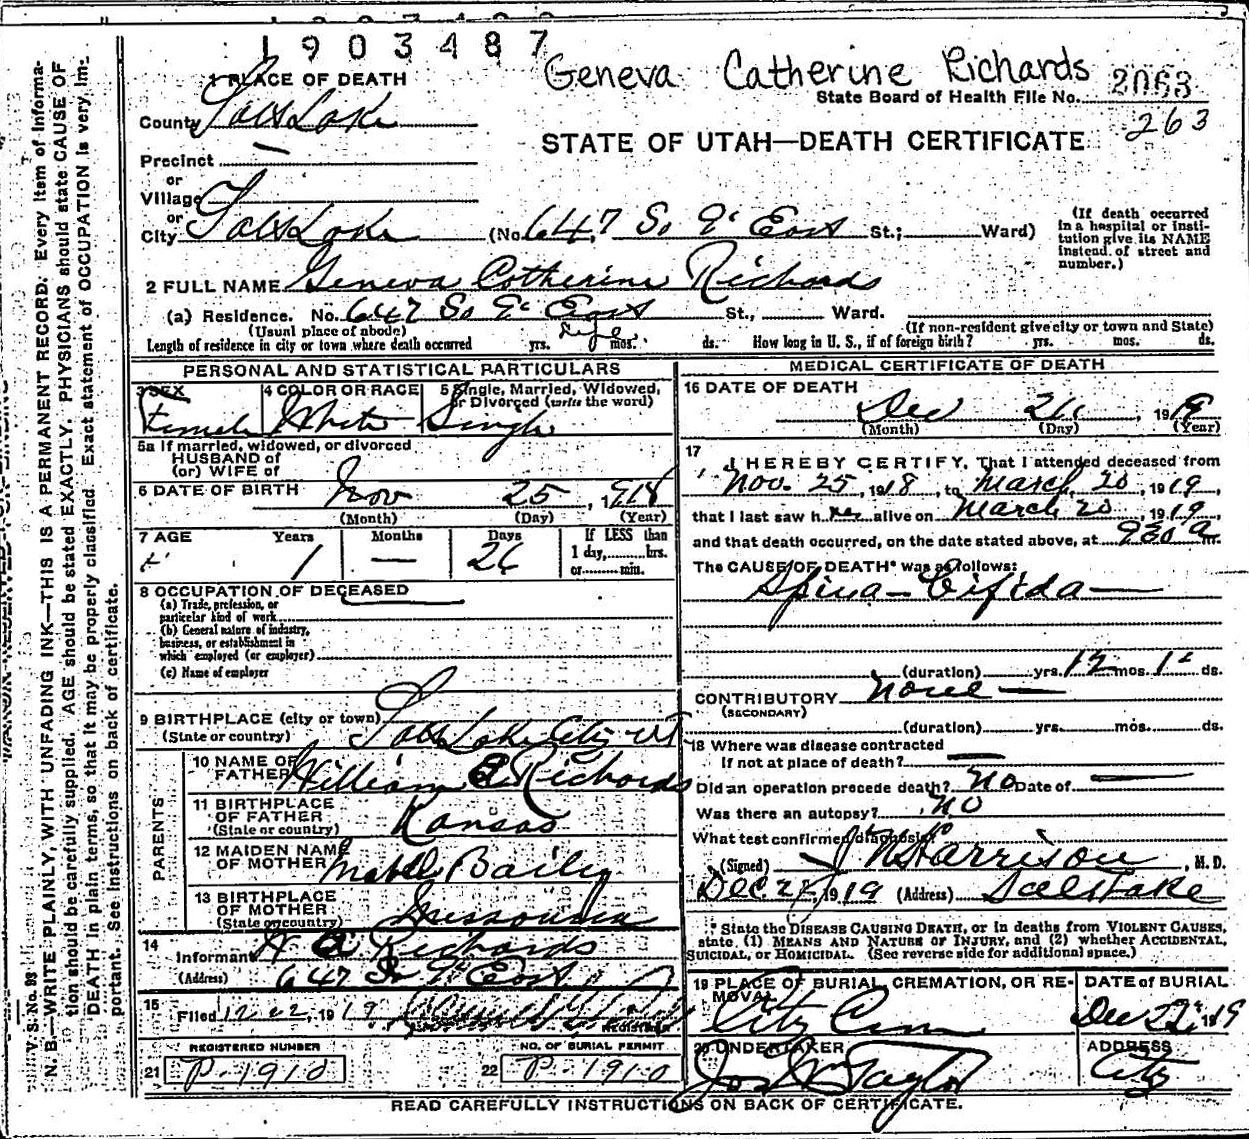 1903487
Geneva Catherine Richards
1 PLACE OF DEATH
State Board of Health File No. 2063
263
County Salt Lake
STATE OF UTAH—DEATH CERTIFICATE
Precinct
or
Village
or
City Salt Lake (No. 647 So 9' East St.; Ward)
(If death occurred in a hospital or institution give its NAME instead of street and number.)
2 FULL NAME Geneva Catherine Richards
(a) Residence. No. 647 So 9' East St., Ward.
(Usual place of abode) (If non-resident give city or town and State)
Length of residence in city or town where death occurred yrs. Life mos. ds. How long in U. S., if of foreign birth? yrs. mos. ds.
PERSONAL AND STATISTICAL PARTICULARS
3 SEX Female
4 COLOR OR RACE White
5 Single, Married, Widowed, or Divorced (write the word) Single
5a If married, widowed, or divorced
HUSBAND of
(or) WIFE of
6 DATE OF BIRTH Nov 25, 1918
(Month) (Day) (Year)
7 AGE Years 1 Months — Days 26 If LESS than 1 day, hrs. or min.
8 OCCUPATION OF DECEASED
(a) Trade, profession, or particular kind of work
(b) General nature of industry, business, or establishment in which employed (or employer)
(c) Name of employer
9 BIRTHPLACE (city or town) Salt Lake City Ut
(State or country)
PARENTS
10 NAME OF FATHER William A Richards
11 BIRTHPLACE OF FATHER (State or country) Kansas
12 MAIDEN NAME OF MOTHER Mabel Bailey
13 BIRTHPLACE OF MOTHER (State or country) Missouri
14 Informant W A Richards
(Address) 647 So 9' East
15 Filed 12-22, 1919
REGISTRAR
REGISTERED NUMBER
21 P-1910
NO. OF BURIAL PERMIT
22 P-1910
MEDICAL CERTIFICATE OF DEATH
16 DATE OF DEATH
Dec 21, 1919
(Month) (Day) (Year)
17 I HEREBY CERTIFY, That I attended deceased from
Nov. 25, 1918, to March 20, 1919,
that I last saw her alive on March 20, 1919,
and that death occurred, on the date stated above, at 930 a m.
The CAUSE OF DEATH* was as follows:
Spina-Bifida—
(duration) yrs. 12 mos. ds.
CONTRIBUTORY None—
(SECONDARY)
(duration) yrs. mos. ds.
18 Where was disease contracted
If not at place of death? —
Did an operation precede death? No Date of —
Was there an autopsy? No
What test confirmed diagnosis?
(Signed) Harrison, M. D.
Dec 21, 1919 (Address) Salt Lake
* State the DISEASE CAUSING DEATH, or in deaths from VIOLENT CAUSES,
state (1) MEANS AND NATURE OF INJURY, and (2) whether ACCIDENTAL,
SUICIDAL, or HOMICIDAL. (See reverse side for additional space.)
19 PLACE OF BURIAL, CREMATION, OR REMOVAL City Cem
DATE of BURIAL Dec 22, 1919
20 UNDERTAKER Jos Wm Taylor
ADDRESS City
READ CAREFULLY INSTRUCTIONS ON BACK OF CERTIFICATE.
V. S. No. 98
N. B.—WRITE PLAINLY, WITH UNFADING INK—THIS IS A PERMANENT RECORD: Every item of information should be carefully supplied. AGE should be stated EXACTLY. PHYSICIANS should state CAUSE OF DEATH in plain terms, so that it may be properly classified. Exact statement of OCCUPATION is very important. See instructions on back of certificate.